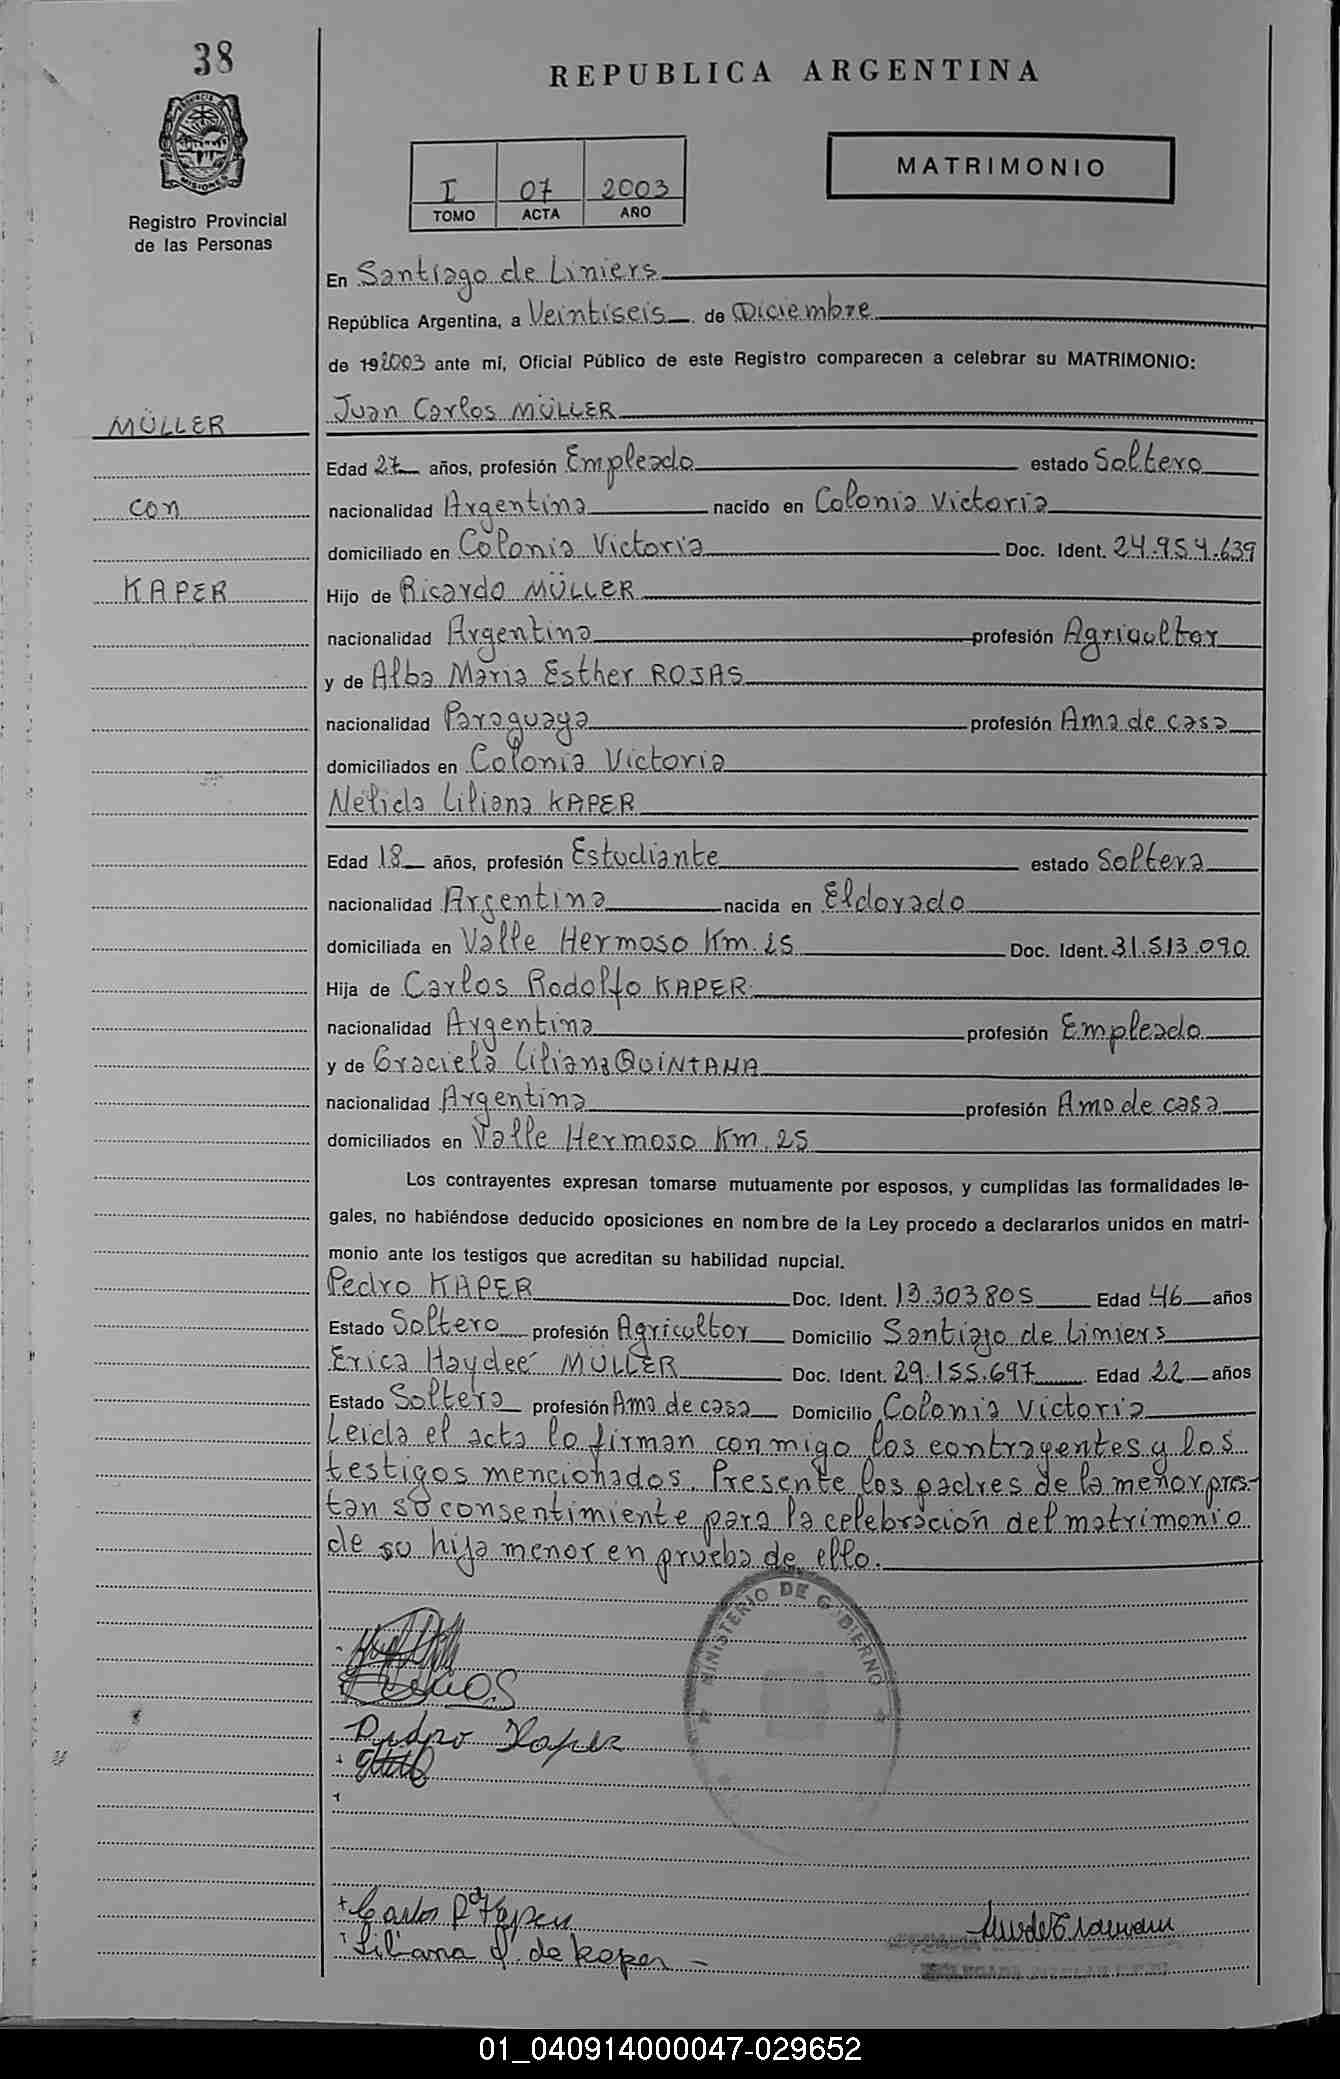 38
REPUBLICA ARGENTINA
MISIONES
Registro Provincial
de las Personas
I 07 2003
TOMO ACTA AÑO
MATRIMONIO
En Santiago de Liniers
República Argentina, a Veintiseis de Diciembre
de 192003 ante mí, Oficial Público de este Registro comparecen a celebrar su MATRIMONIO:
MÜLLER
con
KAPER
Juan Carlos MÜLLER
Edad 27 años, profesión Empleado estado Soltero
nacionalidad Argentina nacido en Colonia Victoria
domiciliado en Colonia Victoria Doc. Ident. 24.954.639
Hijo de Ricardo MÜLLER
nacionalidad Argentina profesión Agricultor
y de Alba Maria Esther ROJAS
nacionalidad Paraguaya profesión Ama de casa
domiciliados en Colonia Victoria
Nélida Liliana KAPER
Edad 18 años, profesión Estudiante estado Soltera
nacionalidad Argentina nacida en Eldorado
domiciliada en Valle Hermoso Km. 25 Doc. Ident. 31.513.090
Hija de Carlos Rodolfo KAPER
nacionalidad Argentina profesión Empleado
y de Graciela Liliana QUINTANA
nacionalidad Argentina profesión Ama de casa
domiciliados en Valle Hermoso Km. 25
Los contrayentes expresan tomarse mutuamente por esposos, y cumplidas las formalidades le-
gales, no habiéndose deducido oposiciones en nombre de la Ley procedo a declararlos unidos en matri-
monio ante los testigos que acreditan su habilidad nupcial.
Pedro KAPER Doc. Ident. 13.303.805 Edad 46 años
Estado Soltero profesión Agricultor Domicilio Santiago de Liniers
Erica Haydeé MÜLLER Doc. Ident. 29.155.697 Edad 22 años
Estado Soltera profesión Ama de casa Domicilio Colonia Victoria
Leida el acta lo firman conmigo los contrayentes y los
testigos mencionados. Presente los padres de la menor pres-
tan su consentimiente para la celebración del matrimonio
de su hija menor en prueba de ello.
MINISTERIO DE GOBIERNO
Pedro Kaper
Carlos Rdo Kaper
Liliana Q. de Kaper
01_040914000047-029652